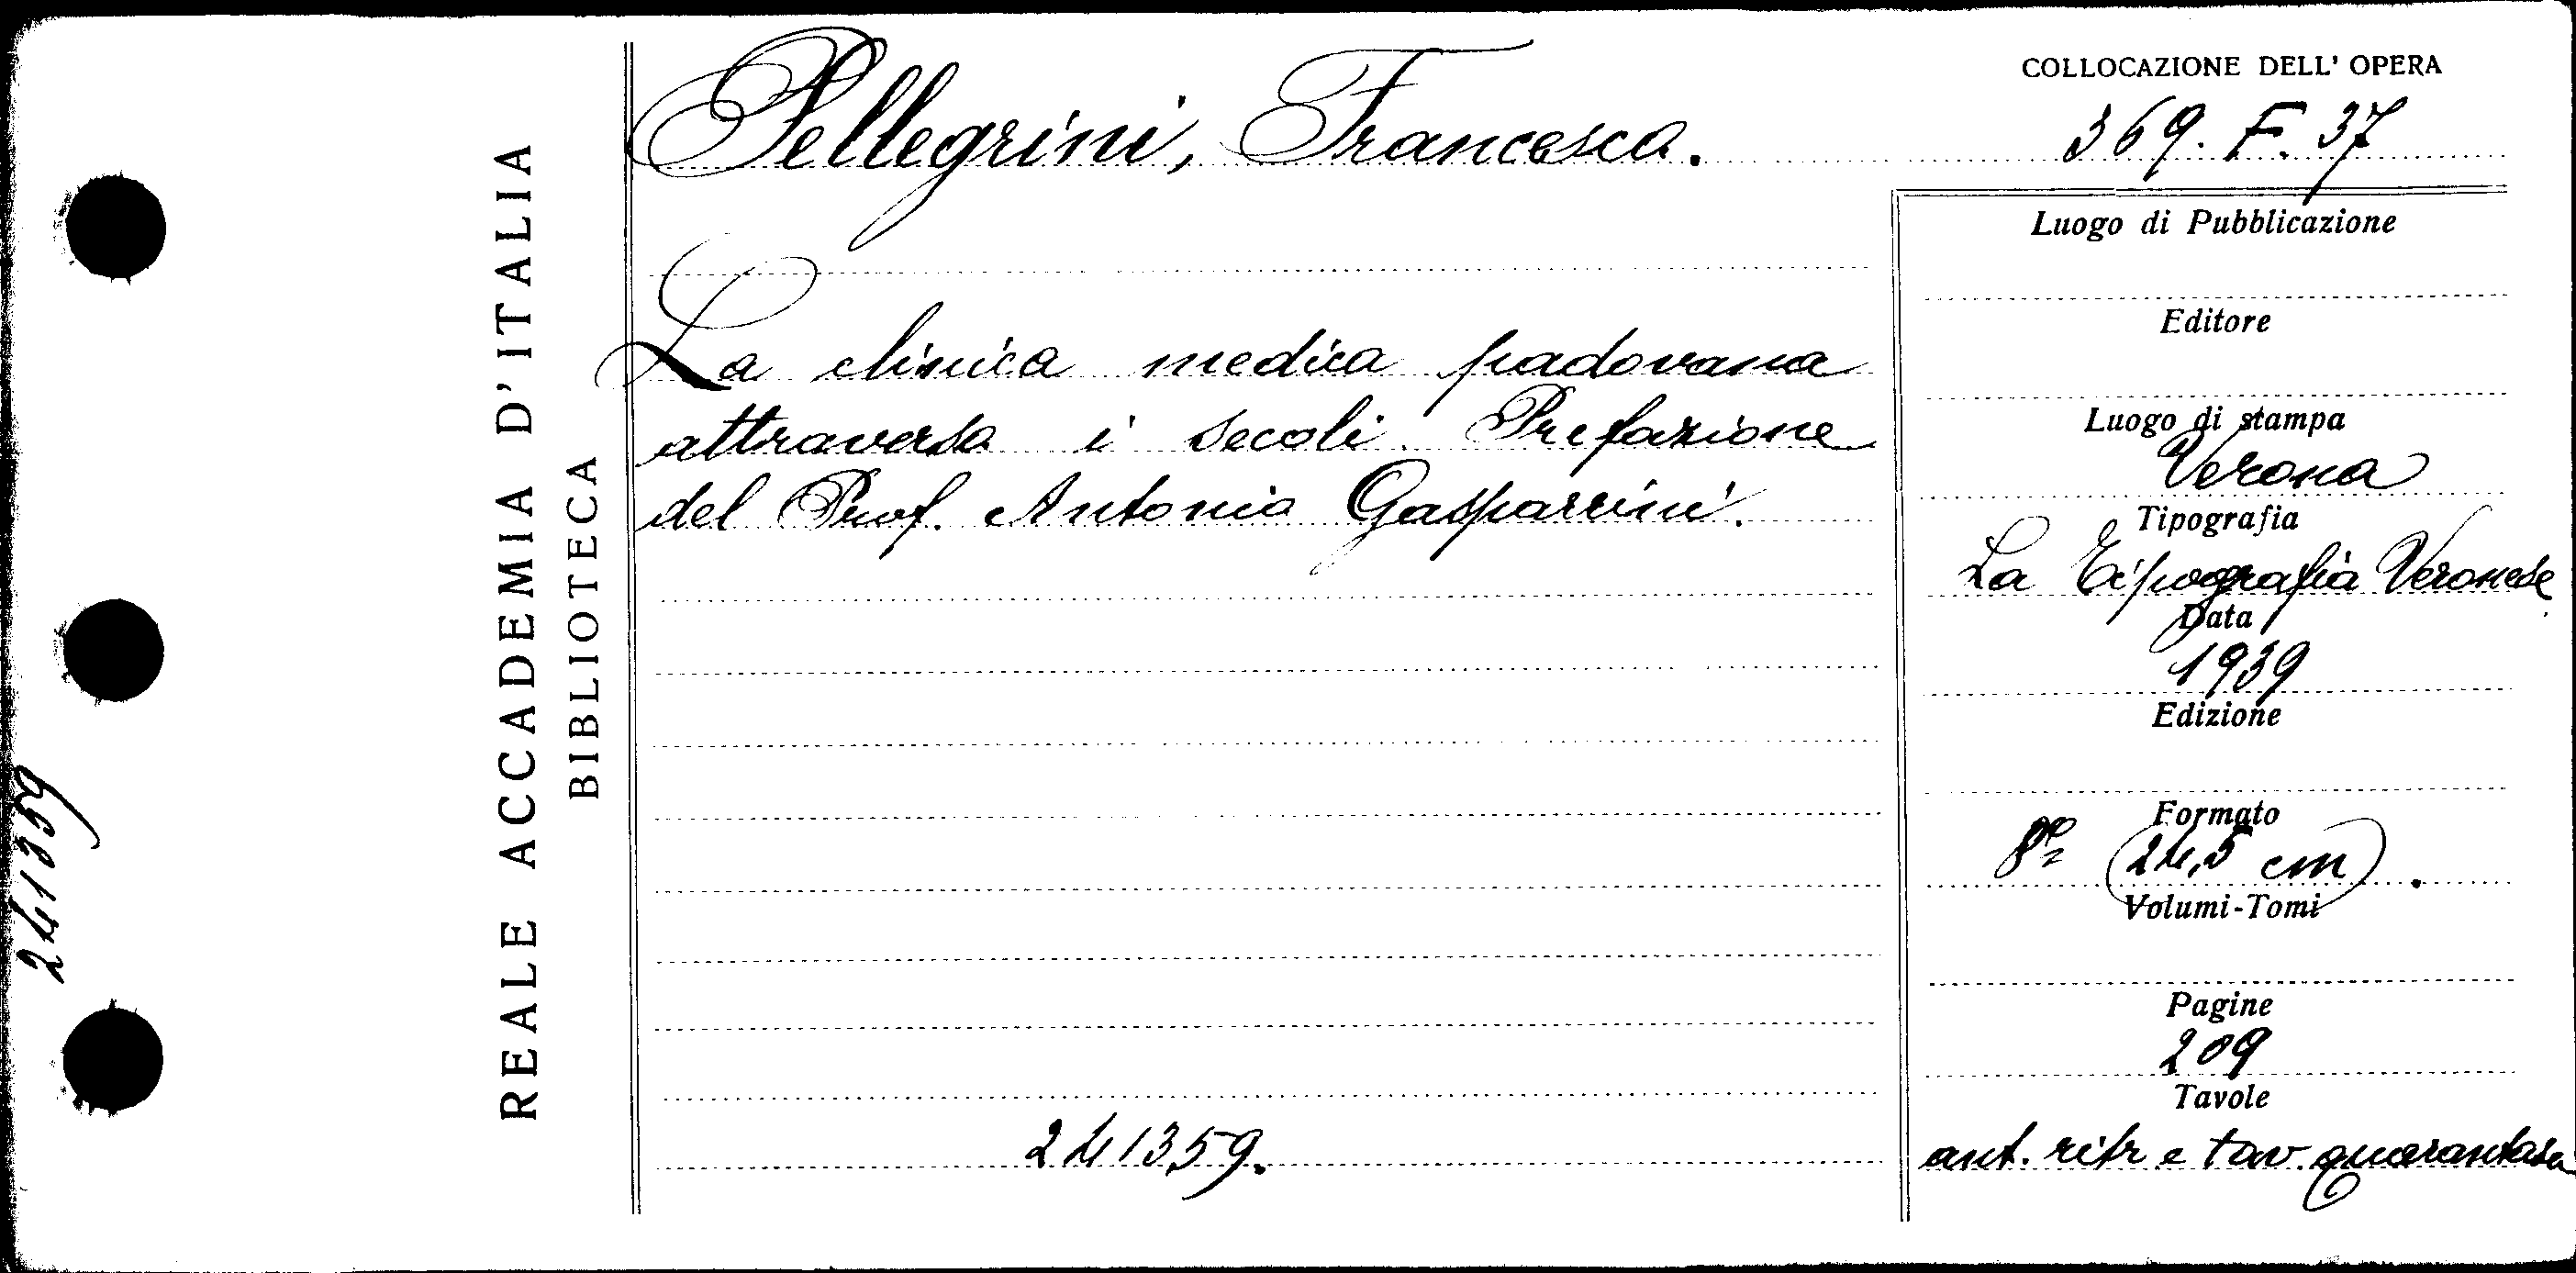 241359
REALE ACCADEMIA D'ITALIA
BIBLIOTECA
Pellegrini, Francesco.
La clinica medica padovana
attraverso i secoli. Prefazione
del Prof. Antonio Gasparrini.
241359.
COLLOCAZIONE DELL' OPERA
369. F. 37
Luogo di Pubblicazione
Editore
Luogo di stampa
Verona
Tipografia
La Tipografia Veronese
Data
1939
Edizione
Formato
8º (24,5 cm).
Volumi-Tomi
Pagine
209
Tavole
ant. ritr e tav.